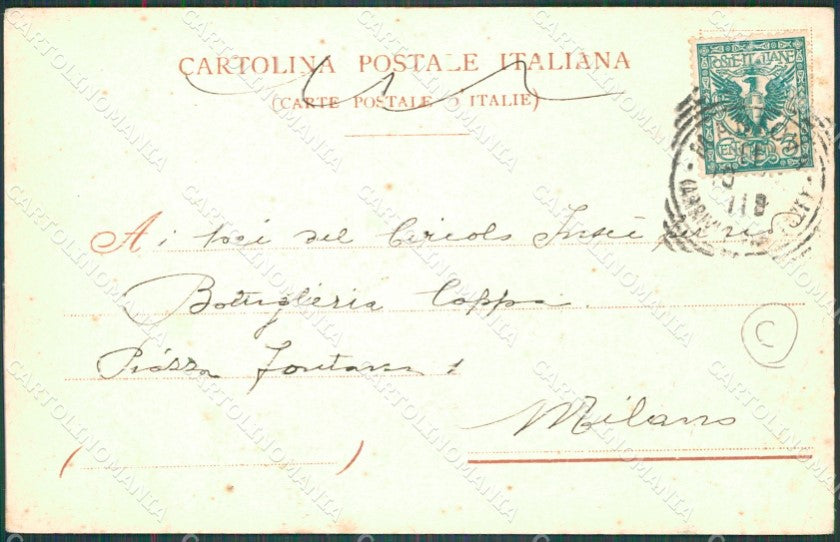 CARTOLINA POSTALE ITALIANA
(CARTE POSTALE D'ITALIE)
POSTE ITALIANE
CENT. 5
118
Ai soci del Circolo
Bottiglieria Coppa
Piazza Fontana 1
Milano
C
CARTOLINOMANIA